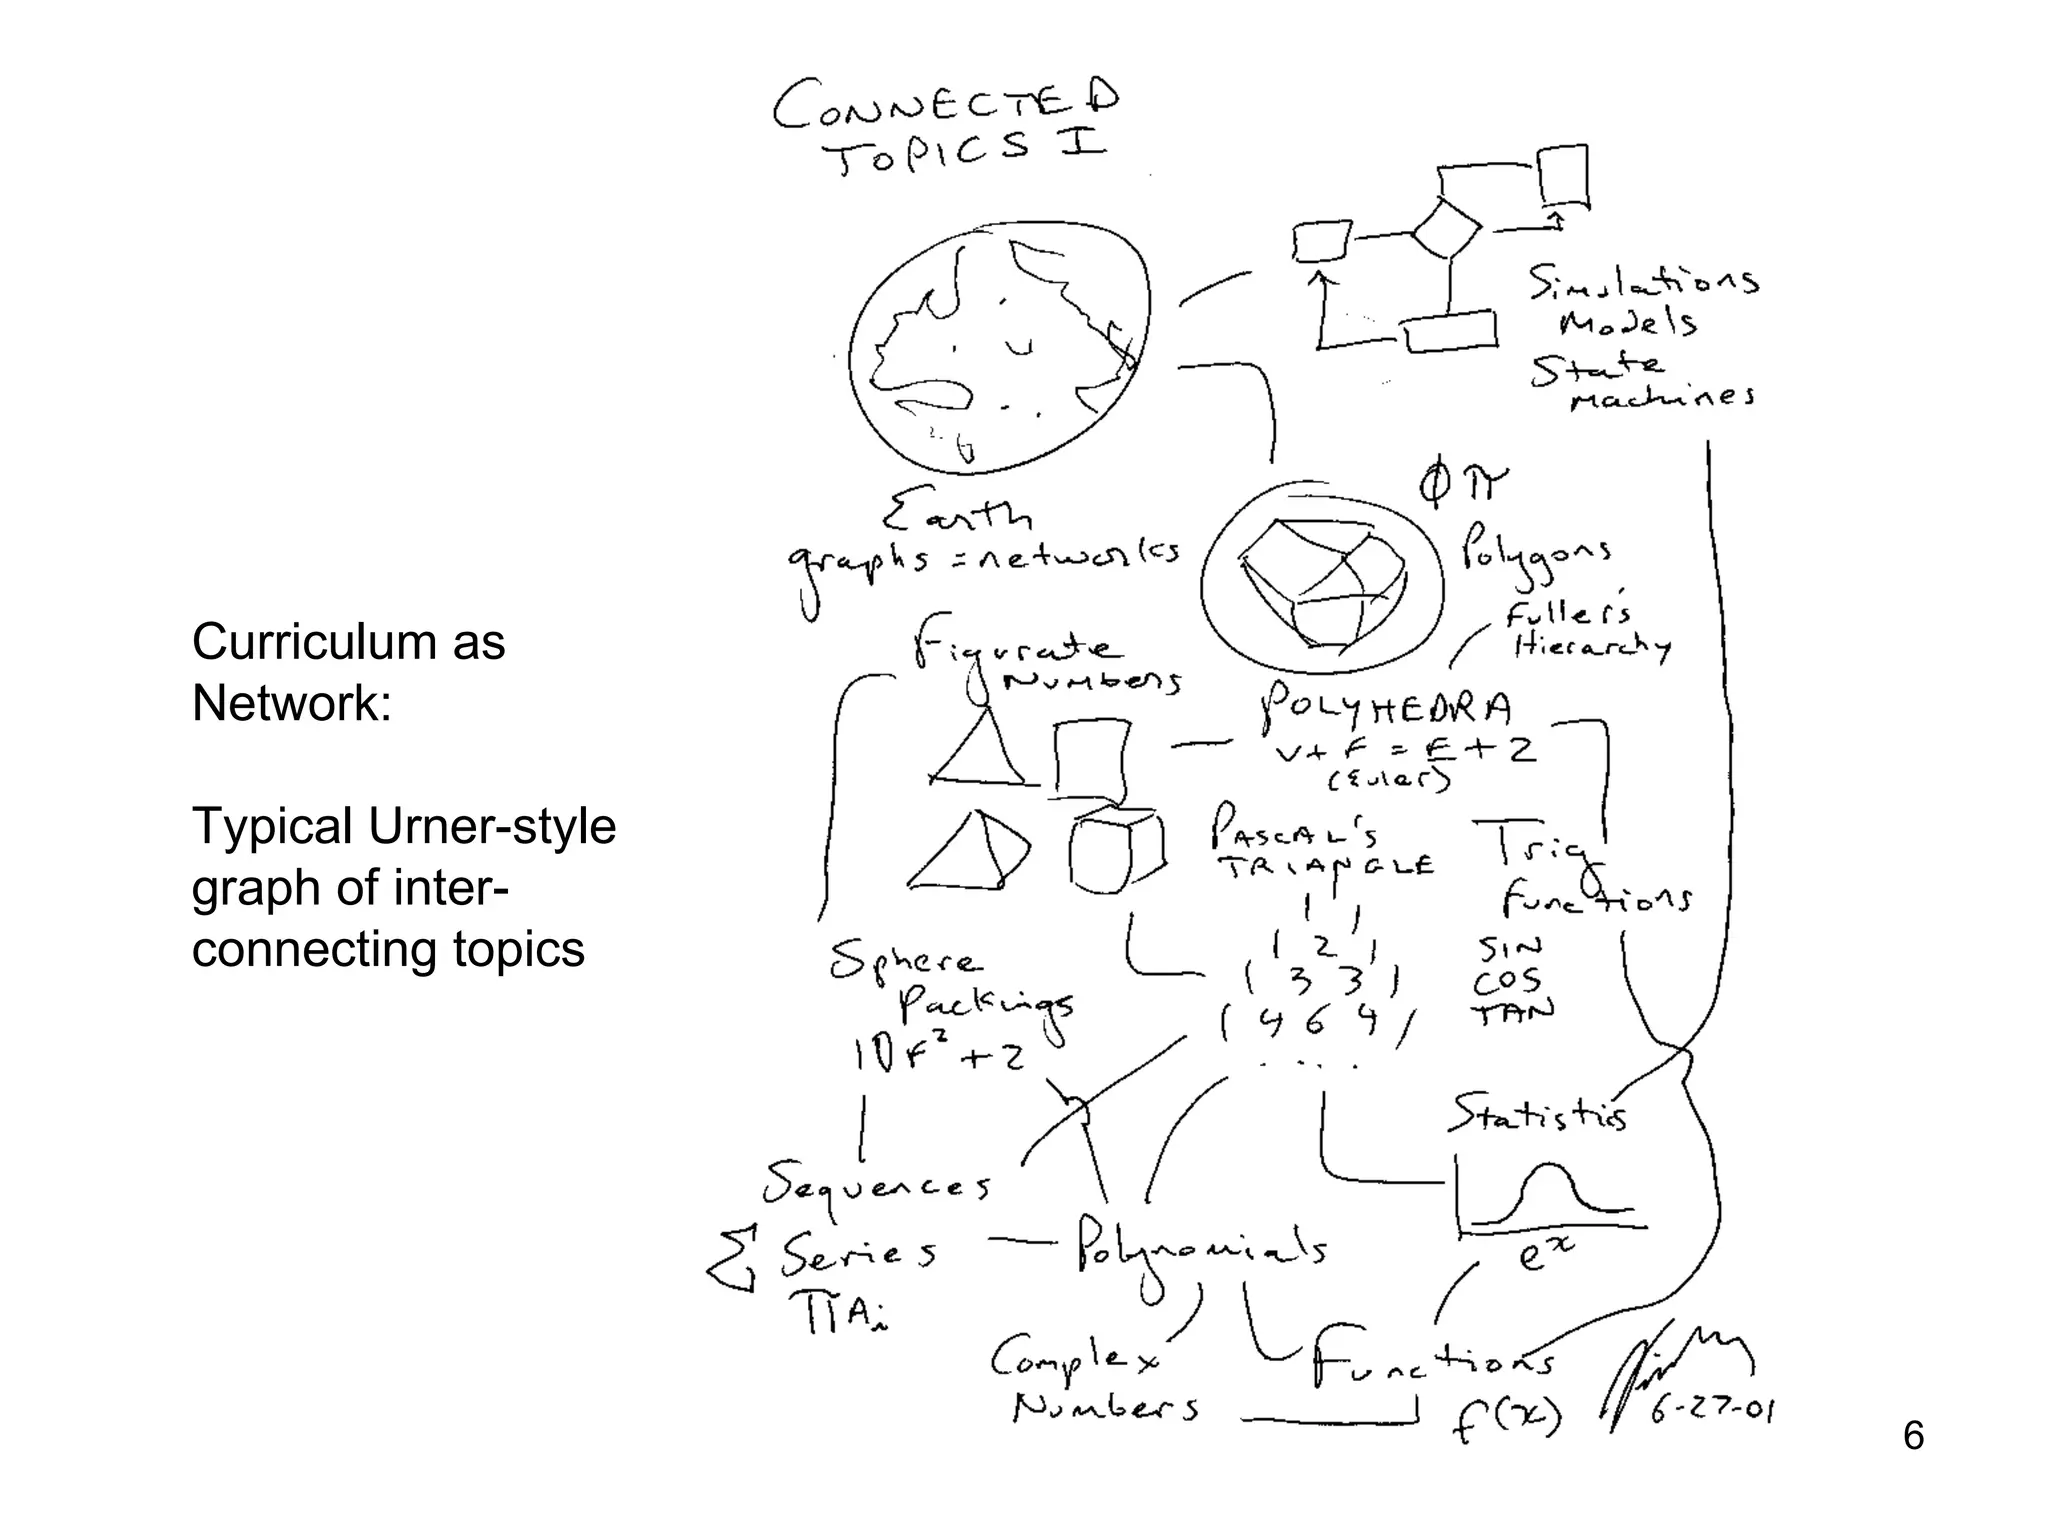 CONNECTED
TOPICS I
Simulations
Models
State
Machines
Earth
graphs = networks
φ π
Polygons
Fuller's
Hierarchy
Figurate
Numbers
POLYHEDRA
V + F = E + 2
(Euler)
Curriculum as
Network:
Typical Urner-style
graph of inter-
connecting topics
PASCAL'S
TRIANGLE
1
1 1
1 2 1
1 3 3 1
1 4 6 4 1
. . . .
Trig
Functions
SIN
COS
TAN
Sphere
Packings
10F² + 2
Statistics
Sequences
Σ Series
ΠAi
Polynomials
e^x
Complex
Numbers
Functions
f(x)
6-27-01
6